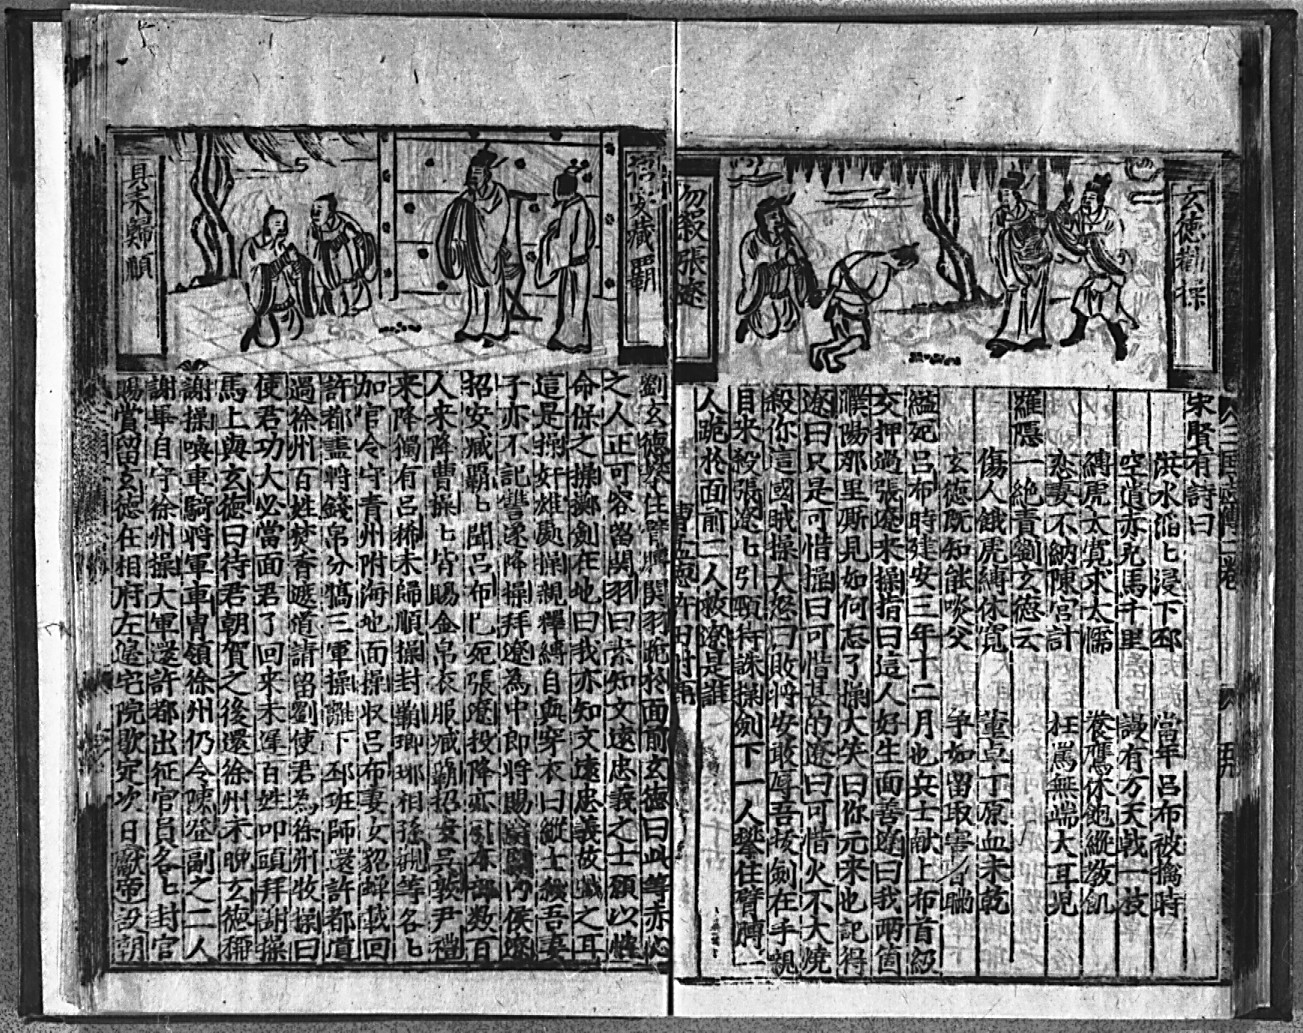 玄德勸操
勿殺張遼
宋賢有詩曰
洪水滔匕浸下邳 當年呂布被擒時
空道赤兔馬千里 謾有方天戟一枝
縛虎太寬求太懦 養鷹休飽縱教飢
恋妻不納陳宮計 枉罵無端大耳児
羅隱一絶責劉玄德云
傷人餓虎縛休寬 董卓丁原血未乾
玄德既知能啖父 争如留取害曹瞞
縊死呂布時建安三年十二月也兵士献上布首級
交押過張遼来操指曰這人好生面善遼曰我两箇
濮陽那里厮見如何忘了操大笑曰你元来也記得
遼曰只是可惜操曰可惜甚的遼曰可惜火不大燒
殺你這國賊操大怒曰敗將安敢辱吾拔劍在手親
自来殺張遼匕引頸待誅操劍下一人攀住臂膊一
人跪於面前二人救遼是誰
曹孟德許田射鹿
張遼藏霸
具来歸順
劉玄德攀住臂膊関羽跪於面前玄德曰此等赤心
之人正可容留関羽曰素知文遠忠義之士願以性
命保之操擲劍在地曰我亦知文遠忠義故戲之耳
這是操奸雄處操親釋縛自與穿衣曰縱士殺吾妻
子亦不記讐遂降操拜遼為中郎將賜爵関内侯遼
招安臧霸匕聞呂布已死張遼投降亦引本部数百
人来降曹操匕皆賜金帛衣服臧霸招安吳敦尹禮
来降獨有呂稀未歸順操封霸瑯琊相孫観等各匕
加官令守青州附海地面操収呂布妻女貂蟬載回
許都盡將錢帛分犒三軍操離下邳班師還許都道
過徐州百姓焚香遮道請留劉使君為徐州牧操曰
使君功大必當面君了回来未遲百姓叩頭拜謝操
馬上與玄德曰待君朝賀之後還徐州未晚玄德稱
謝操喚車騎將軍車胄領徐州仍令陳登副之二人
謝畢自守徐州操大軍還許都出征官員各匕封官
賜賞留玄德在相府左邊宅院歇定次日獻帝設朝